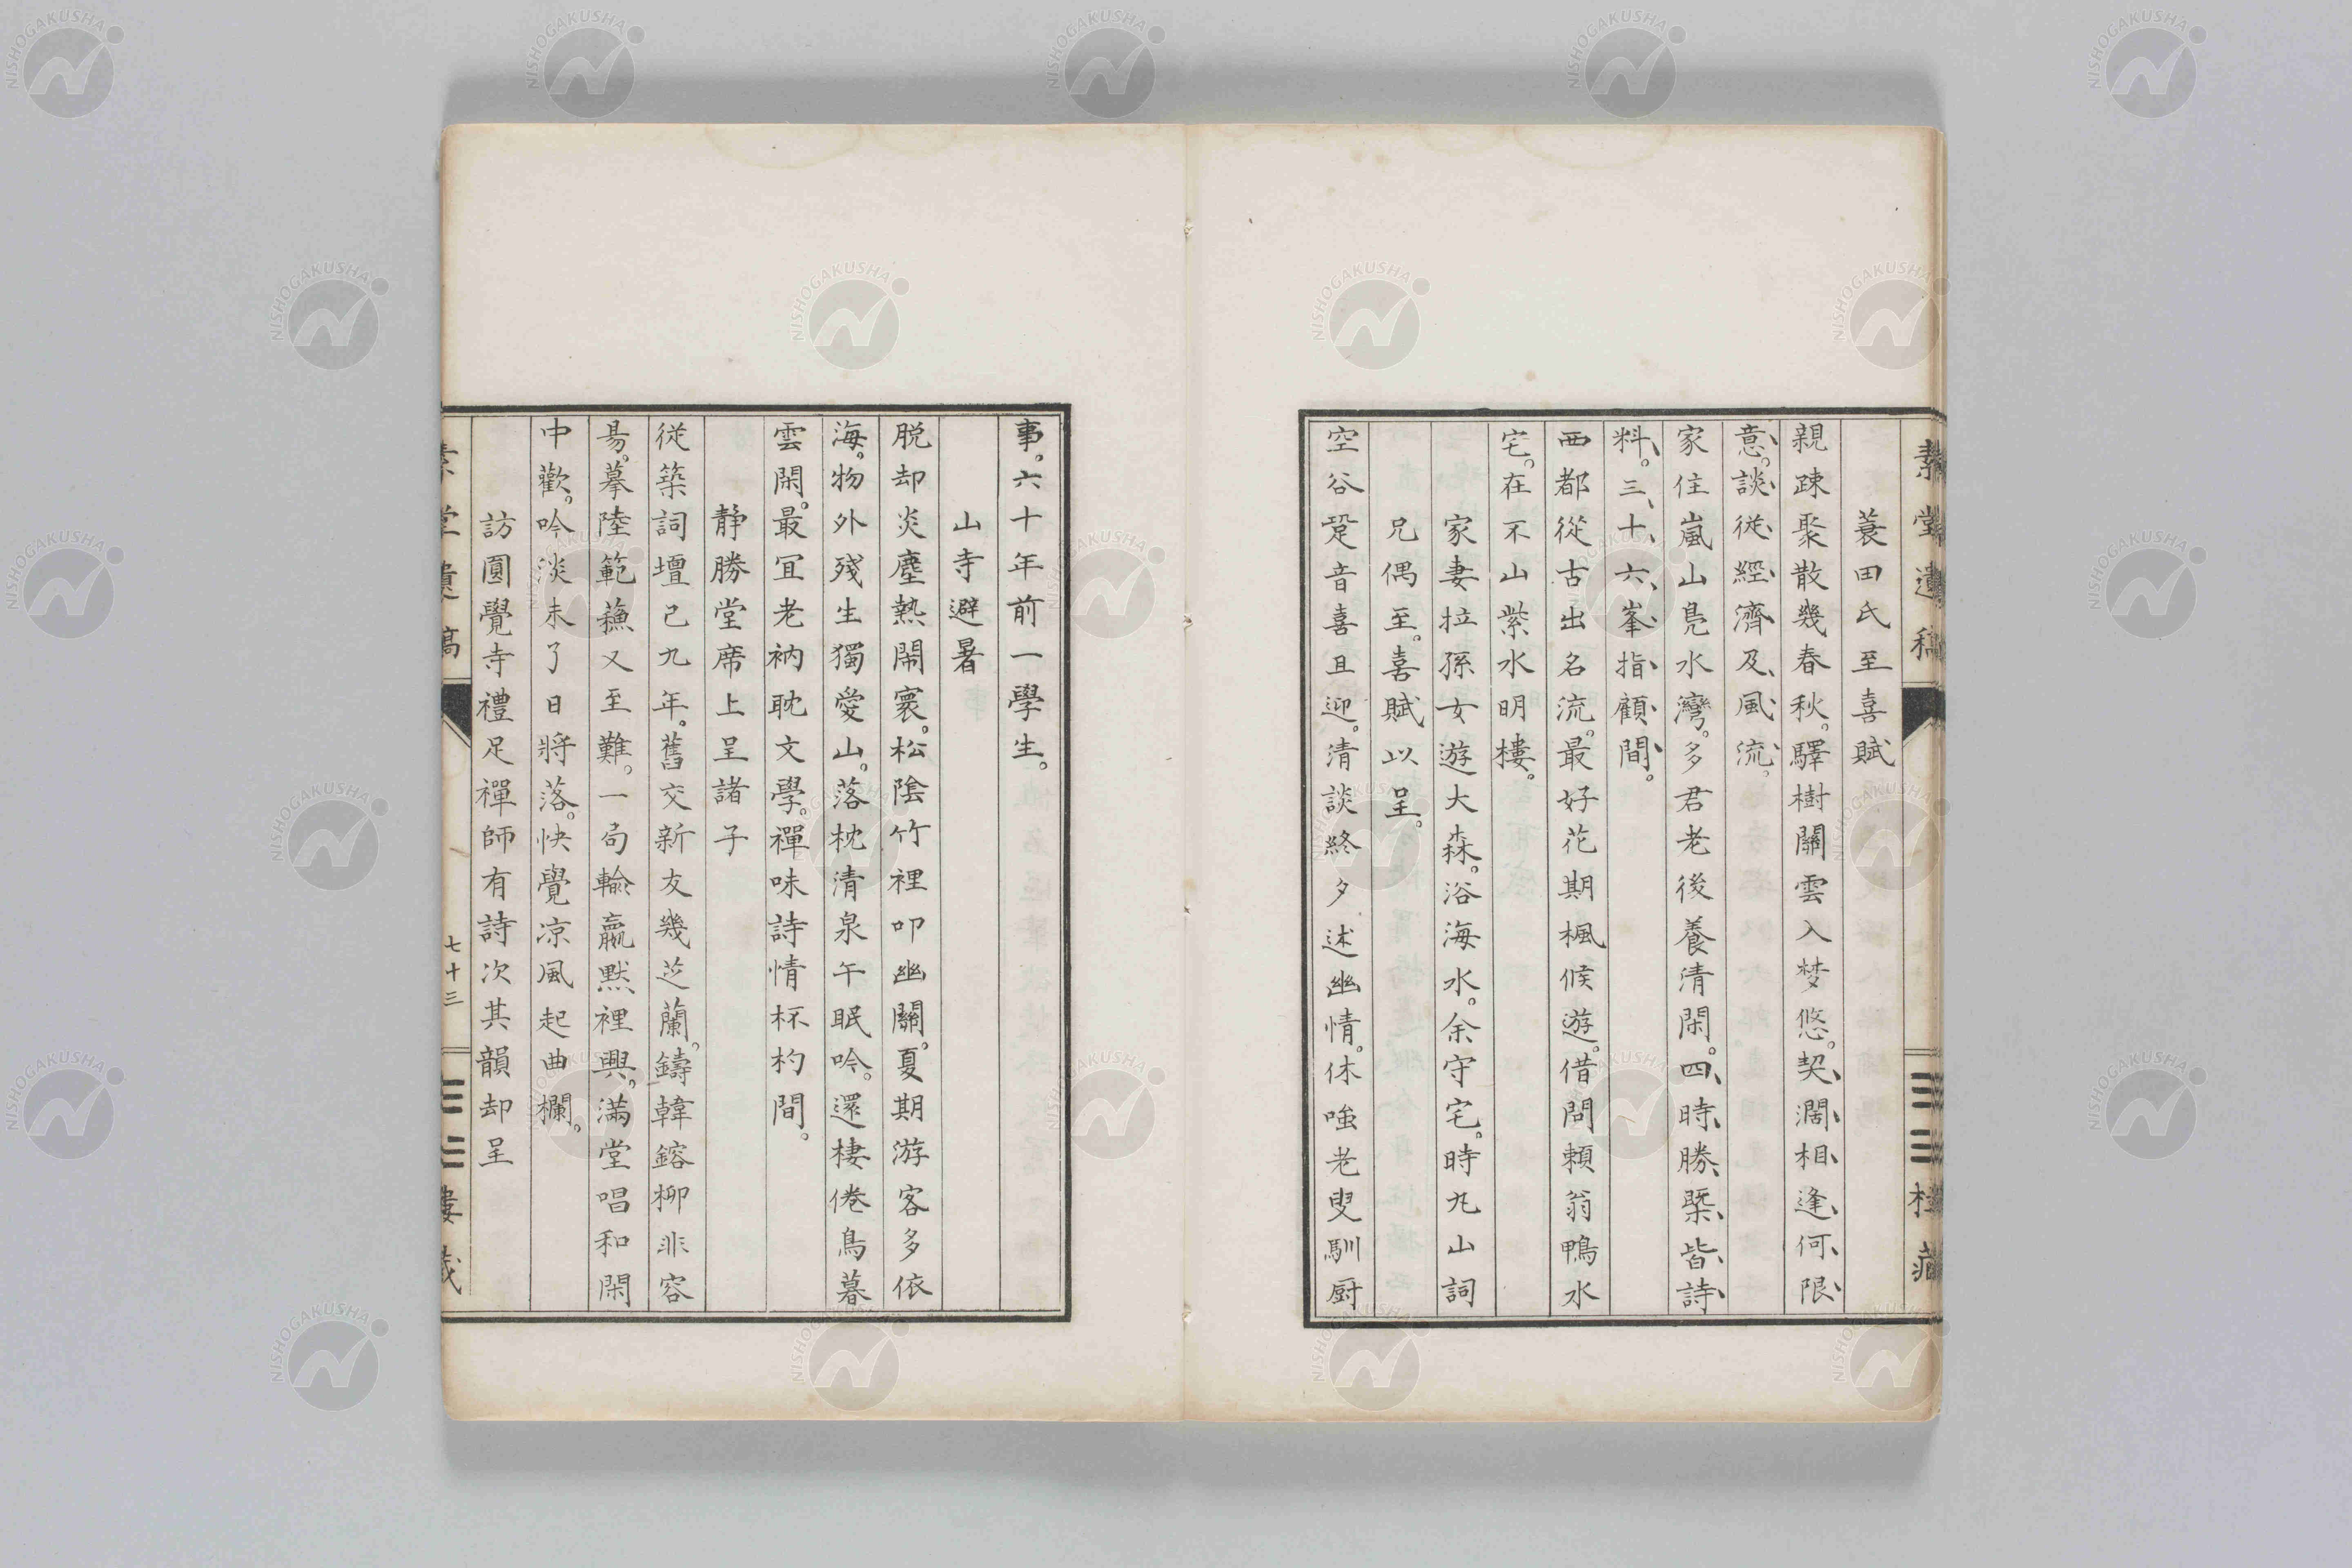 素堂遺稿
三三樓藏
蓑田氏至喜賦
親疎聚散幾春秋。驛樹關雲入梦悠。契濶相逢何限
意。談從經濟及風流。
家住嵐山鳧水灣。多君老後養清閑。四時勝槩皆詩
料。三十六峯指顧間。
西都從古出名流。最好花期楓候遊。借問頼翁鴨水
宅。在不山紫水明樓。
家妻拉孫女遊大森。浴海水。余守宅。時九山詞
兄偶至。喜賦以呈。
空谷跫音喜且迎。清談終夕述幽情。休嗤老叟馴厨
事。六十年前一學生。
山寺避暑
脱却炎塵熱閙寰。松陰竹裡叩幽關。夏期游客多依
海。物外殘生獨愛山。落枕清泉午眠吟。還棲倦鳥暮
雲閑。最宜老衲耽文學。禪味詩情杯杓間。
静勝堂席上呈諸子
從築詞壇已九年。舊交新友幾芝蘭。鑄韓鎔柳非容
昜。摹陸範蘓又至難。一句輸贏黙裡興。滿堂唱和閑
中歡。吟淡未了日將落。快覺凉風起曲欄。
訪圓覺寺禮足禪師有詩次其韻却呈
素堂遺稿
七十三
三三樓藏
NISHOGAKUSHA